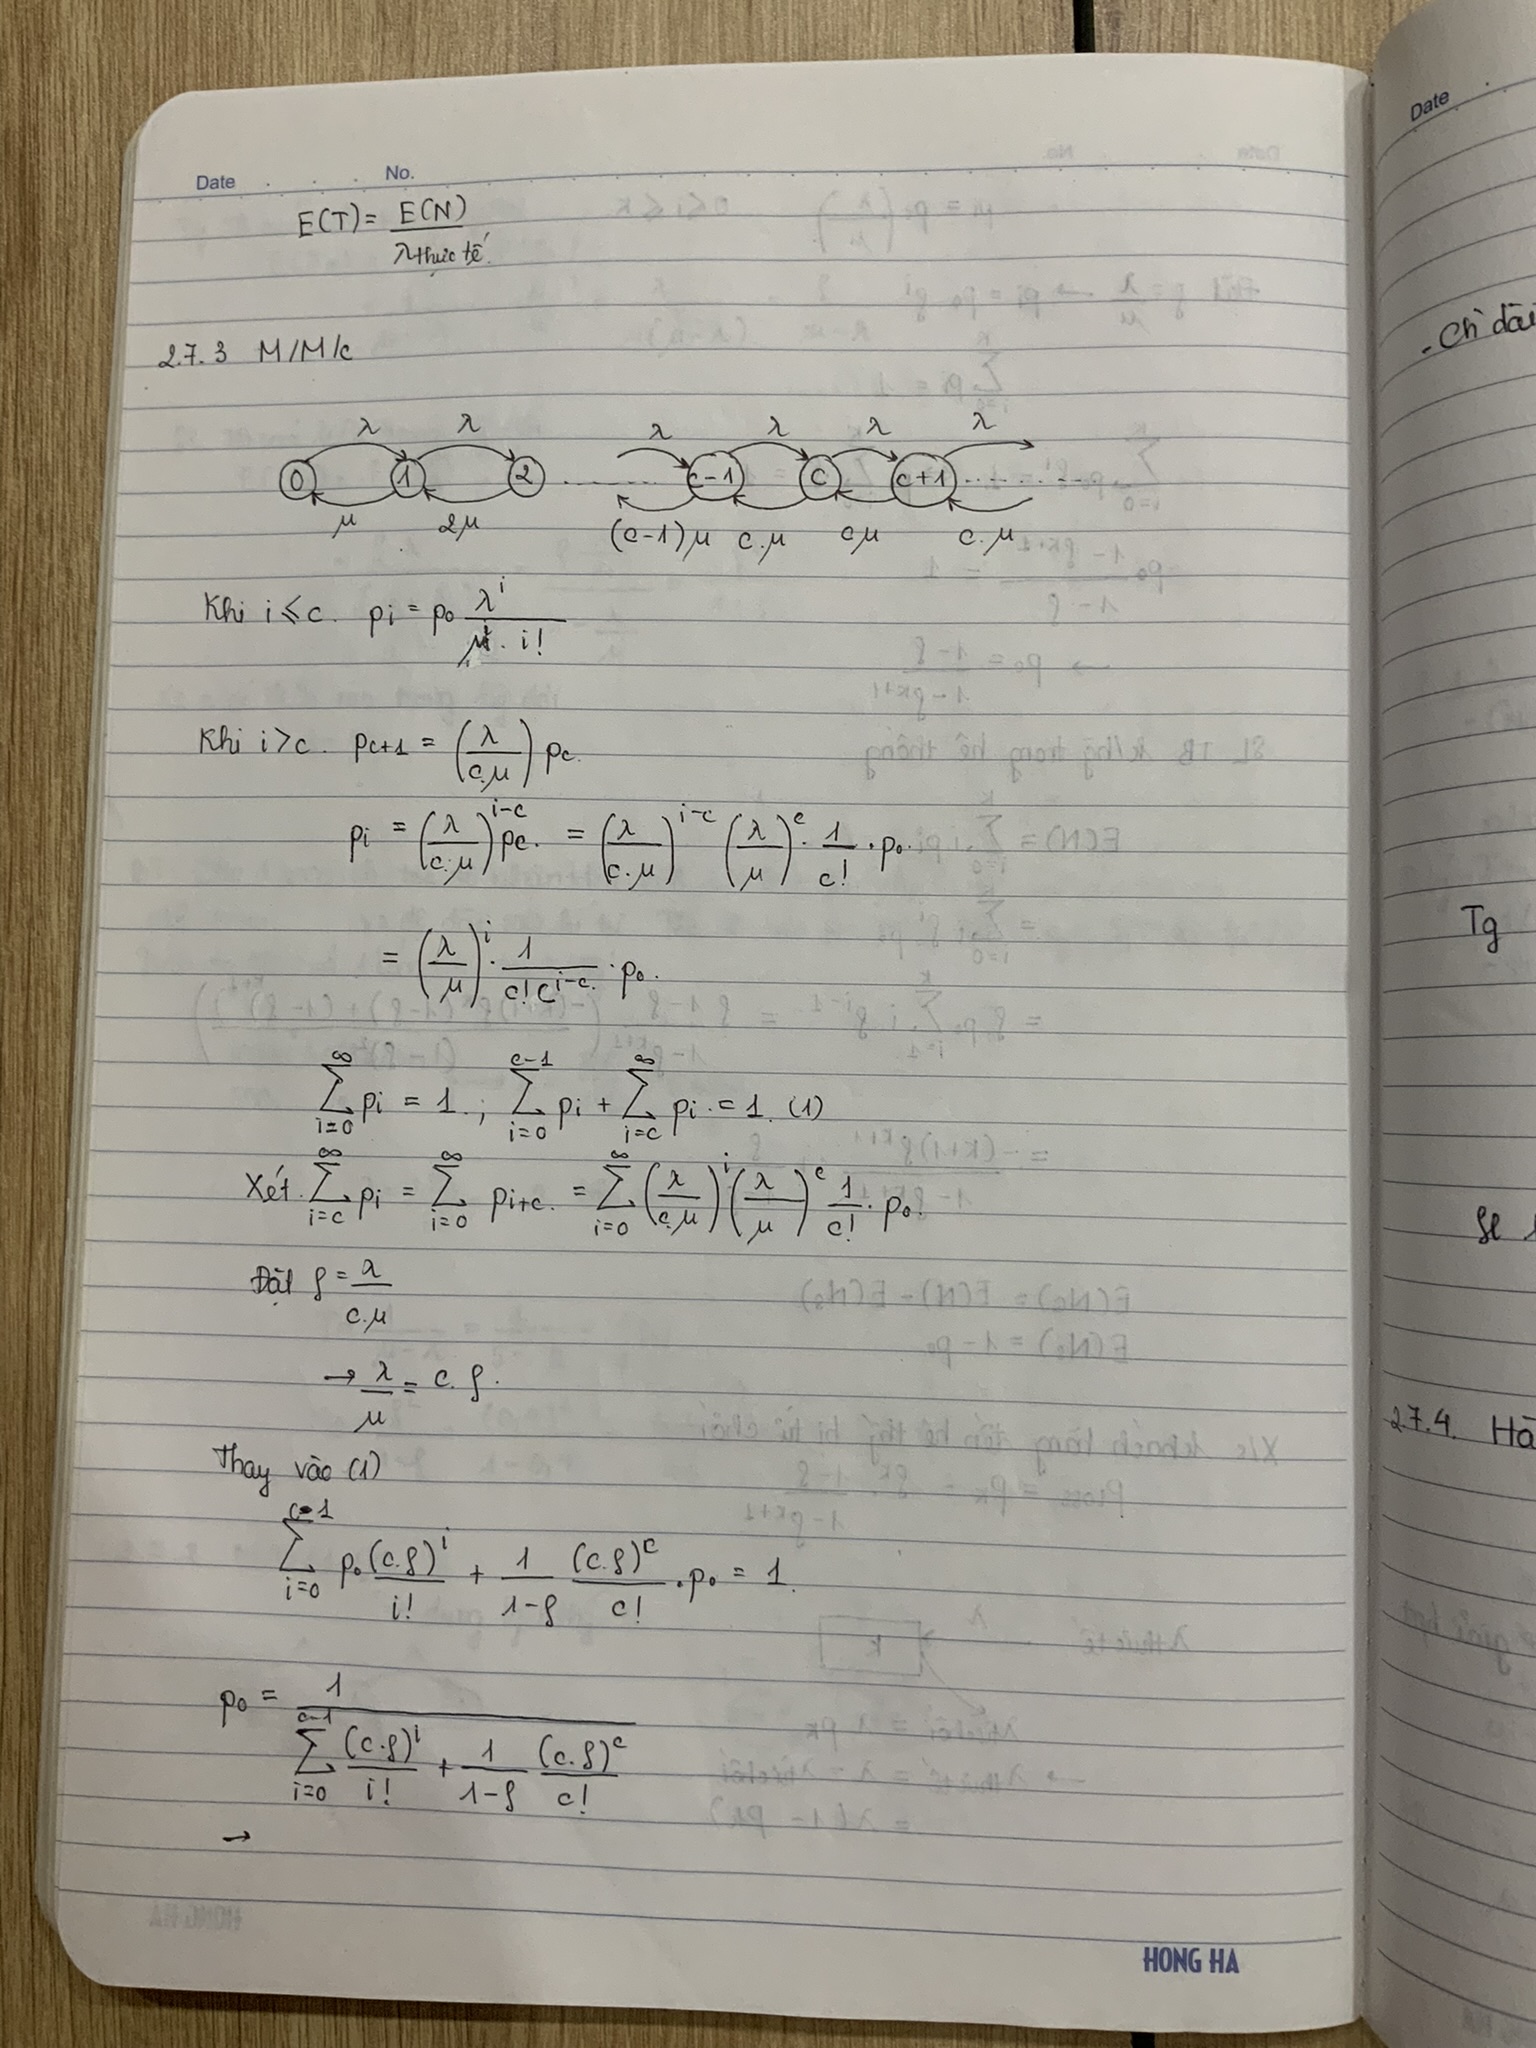 Date No.
E(T) = E(N) / λthực tế
2.7.3 M/M/c
λ λ λ λ λ λ
0 1 2 ....... c-1 c c+1 .......
μ 2μ (c-1)μ c.μ cμ c.μ
Khi i ≤ c. pi = p0 λ^i / μ^i . i!
Khi i > c. pc+1 = (λ / c.μ) pc.
pi = (λ / c.μ)^(i-c) pc. = (λ / c.μ)^(i-c) (λ / μ)^c . 1 / c! . p0.
= (λ / μ)^i . 1 / c! c^(i-c) . p0.
∑_{i=0}^{∞} pi = 1 ; ∑_{i=0}^{c-1} pi + ∑_{i=c}^{∞} pi = 1. (1)
Xét ∑_{i=c}^{∞} pi = ∑_{i=0}^{∞} pi+c. = ∑_{i=0}^{∞} (λ / c.μ)^i (λ / μ)^c 1 / c! . p0.
Đặt ρ = λ / c.μ
→ λ / μ = c.ρ.
Thay vào (1)
∑_{i=0}^{c-1} p0 (c.ρ)^i / i! + 1 / 1-ρ (c.ρ)^c / c! . p0 = 1.
p0 = 1 / ∑_{i=0}^{c-1} (c.ρ)^i / i! + 1 / 1-ρ (c.ρ)^c / c!
→
HONG HA
Date
- Chỉ
Tg
2.7.4.